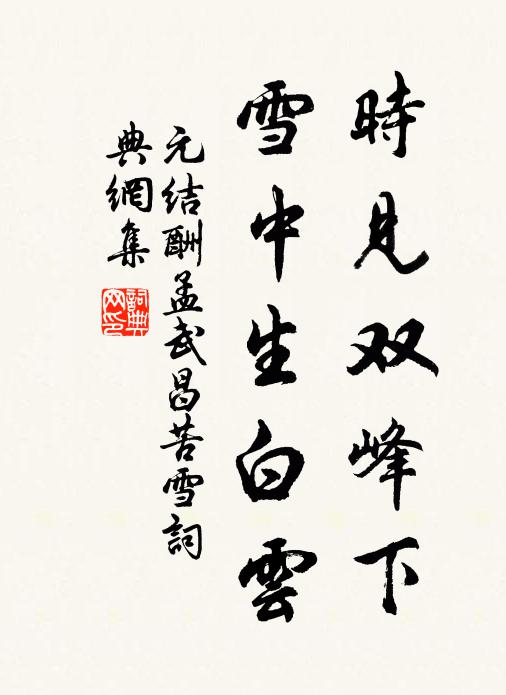 時見双峰下
雪中生白雲
元结酬孟武昌苦雪詞
典網集
詞典
网印